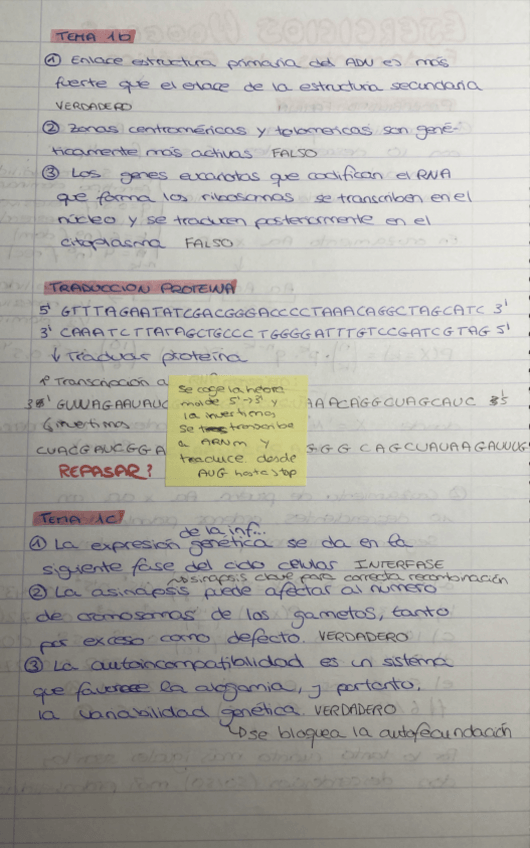 TEMA 1b
① Enlace estructura primaria del ADN es más
fuerte que el enlace de la estructura secundaria
VERDADERO
② Zonas centroméricas y telomericas son gené-
ticamente más activas FALSO
③ Los genes eucariotas que codifican el RNA
que forma los ribosomas se transcriben en el
núcleo y se traducen posteriormente en el
citoplasma FALSO
TRADUCCION PROTEINA
5' GTTTAGAATATCGACGGGACCCCTAAACAGGCTAGCATC 3'
3' CAAATCTTATAGCTGCCCTGGGGATTTGTCCGATCGTAG 5'
↓ Traducir proteina
Transcripción a
GUUUAGAAUAUC AAACAGGCUAGCAUC
↓ invertimos
CUACGAUCGGA GG CAGCUAUAAGAUUUG
se coge la hebra
molde 5'→3' y
la invertimos
se transcribe
a ARNm y
traduce desde
AUG hasta stop
REPASAR?
TEMA 1c
de la inf...
① La expresión genética se da en la
siguiente fase del ciclo celular INTERFASE
↳ sinapsis clave para correcta recombinación
② La asinapsis puede afectar al numero
de cromosomas de los gametos, tanto
por exceso como defecto. VERDADERO
③ La autoincompatibilidad es un sistema
que favorece la alogamia, y portanto,
la variabilidad genética. VERDADERO
↳ se bloquea la autofecundación